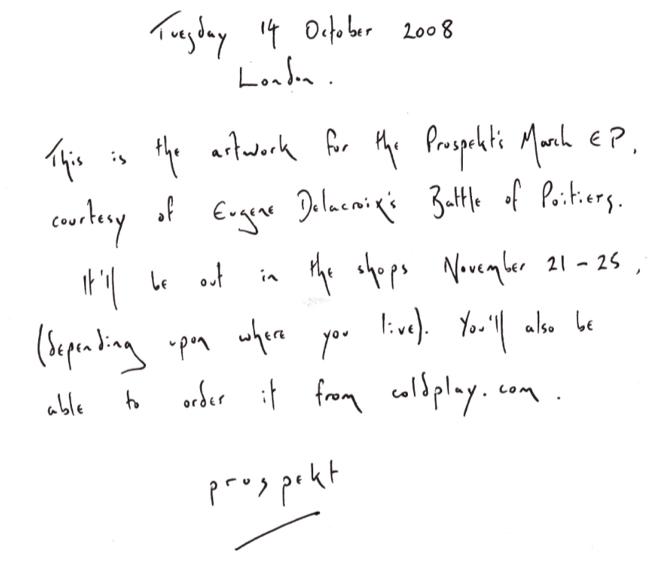 Tuesday 14 October 2008
London.
This is the artwork for the Prospekt's March EP,
courtesy of Eugene Delacroix's Battle of Poitiers.
It'll be out in the shops November 21-25,
(depending upon where you live). You'll also be
able to order it from coldplay.com.
prospekt